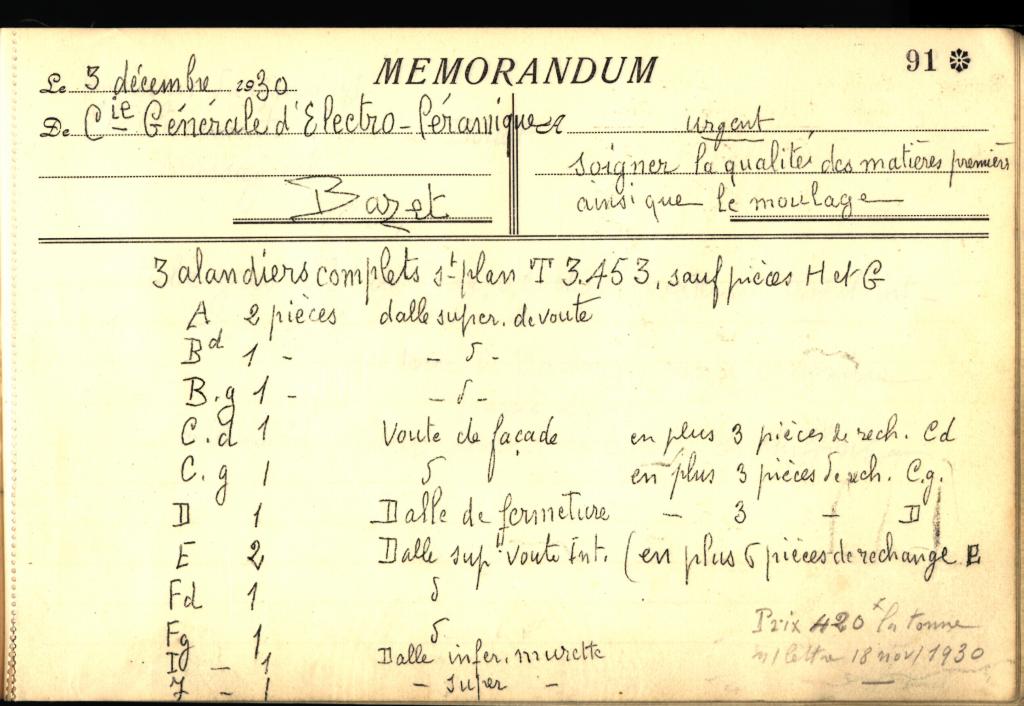 MEMORANDUM
91
Le 3 décembre 1930
De Cie Générale d'Electro-Céramique
urgent
soigner la qualité des matières premières
Bazet
ainsi que le moulage
3 alandiers complets st plan T 3.453, sauf pièces H et G
A 2 pièces dalle super. de voute
Bd 1 - - δ -
B.g 1 - - δ -
C.d 1 Voute de façade en plus 3 pièces de rech. Cd
C.g 1 δ en plus 3 pièces de rech. C.g.
D 1 Dalle de fermeture - 3 - D
E 2 Dalle sup voute Int. (en plus 6 pièces de rechange E
Fd 1 δ
Fg 1 δ
I - 1 Dalle infer. murette
J - 1 - super -
Prix 420 x la tonne
n/ lettre 18 nov/1930